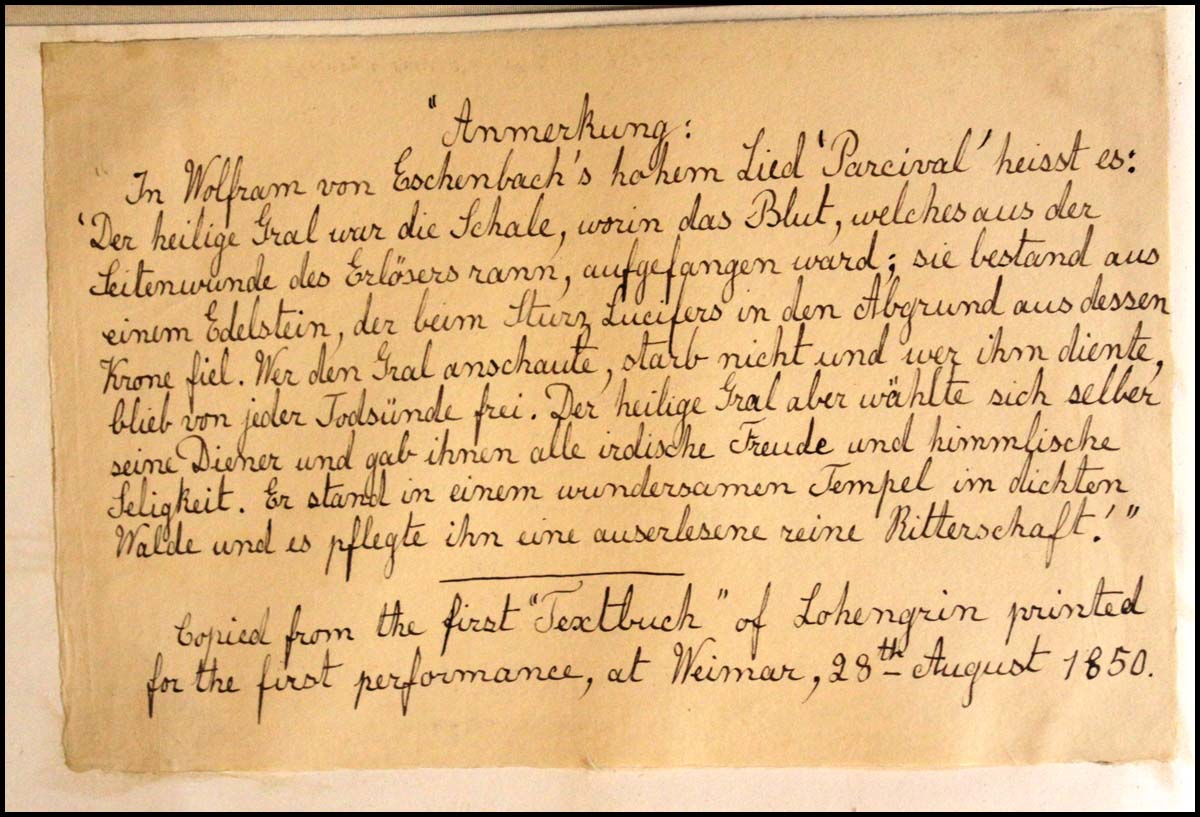 "Anmerkung:
"In Wolfram von Eschenbach's hohem Lied 'Parcival' heisst es:
'Der heilige Gral war die Schale, worin das Blut, welches aus der
Seitenwunde des Erlösers rann, aufgefangen ward; sie bestand aus
einem Edelstein, der beim Sturz Lucifers in den Abgrund aus dessen
Krone fiel. Wer den Gral anschaute, starb nicht und wer ihm diente,
blieb von jeder Todsünde frei. Der heilige Gral aber wählte sich selber
seine Diener und gab ihnen alle irdische Freude und himmlische
Seligkeit. Er stand in einem wundersamen Tempel im dichten
Walde und es pflegte ihn eine auserlesene reine Ritterschaft.'"
Copied from the first "Textbuch" of Lohengrin printed
for the first performance, at Weimar, 28th August 1850.